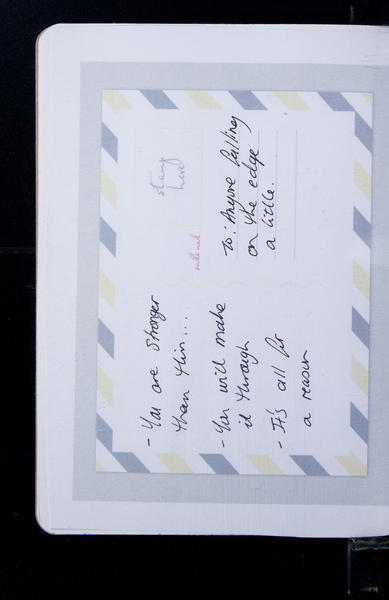 - You are stronger
than this....
- You will make
it through
- It's all for
a reason
stamp
here
To: Anyone falling
on the edge
a little.